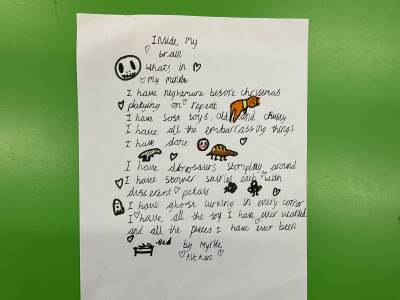 Inside my
brain
whats in
my minde
I have nightmare before christmas
platying on repeat
I have soft toys, old and chusey
I have all the embarrassing things
I have done
I have dinosaurs stomping around
I have flower each with
different petals
I have ghost lurking in every corner
I have all the toy I have ever wanted
and all the places I have ever been
.Bed by Myrtle